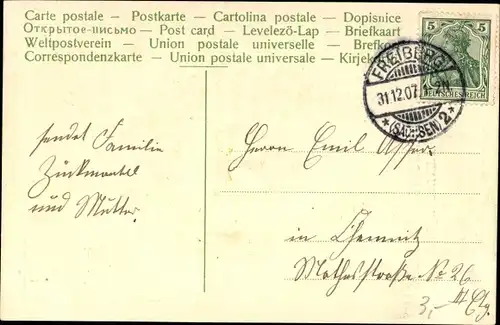 Carte postale – Postkarte – Cartolina postale – Dopisnice
Открытое-письмо – Post card – Levelező-Lap – Briefkaart
Weltpostverein – Union postale universelle – Brefkort
Correspondenzkarte – Union postale universale – Kirjekortti
5 5
DEUTSCHES REICH
FREIBERG
31.12.07
* (SACHSEN) 2 *
sendet Familie
und Mutter.
Herrn Emil
in Chemnitz
No 26
3,-